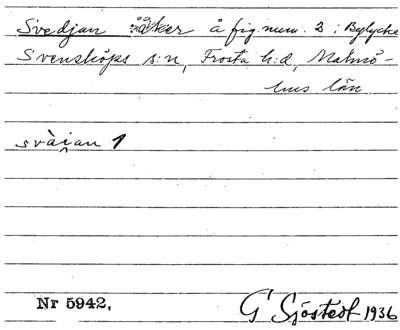 Svedjan åker å fig. num. 2 i Bylycke
Svensköps s:n, Frosta h:d, Malmö-
hus län
svài̯an 1
Nr 5942. G Sjöstedt 1936